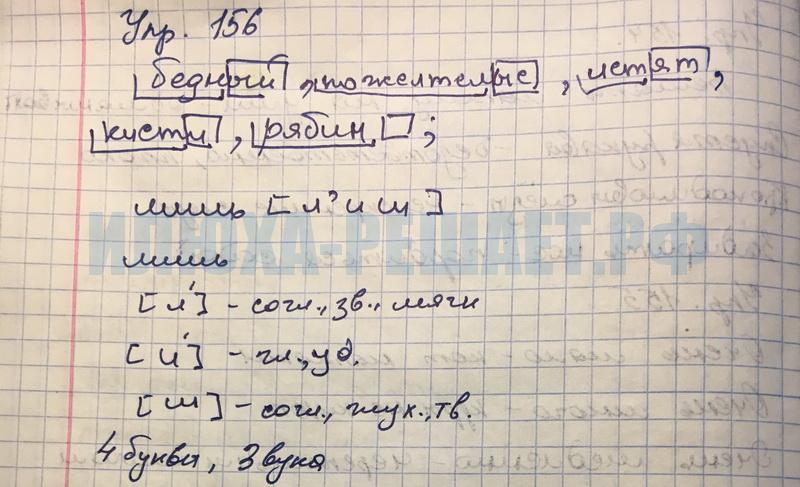 Упр. 156
бедный, пожелтелые, летят,
кисти, рябин ;
лишь [л'иш]
ИЛЮХА-РЕШАЕТ.РФ
лишь
[л'] - согл., зв., мягк
[и́] - гл., уд.
[ш] - согл., глух., тв.
4 буквы, 3 звука